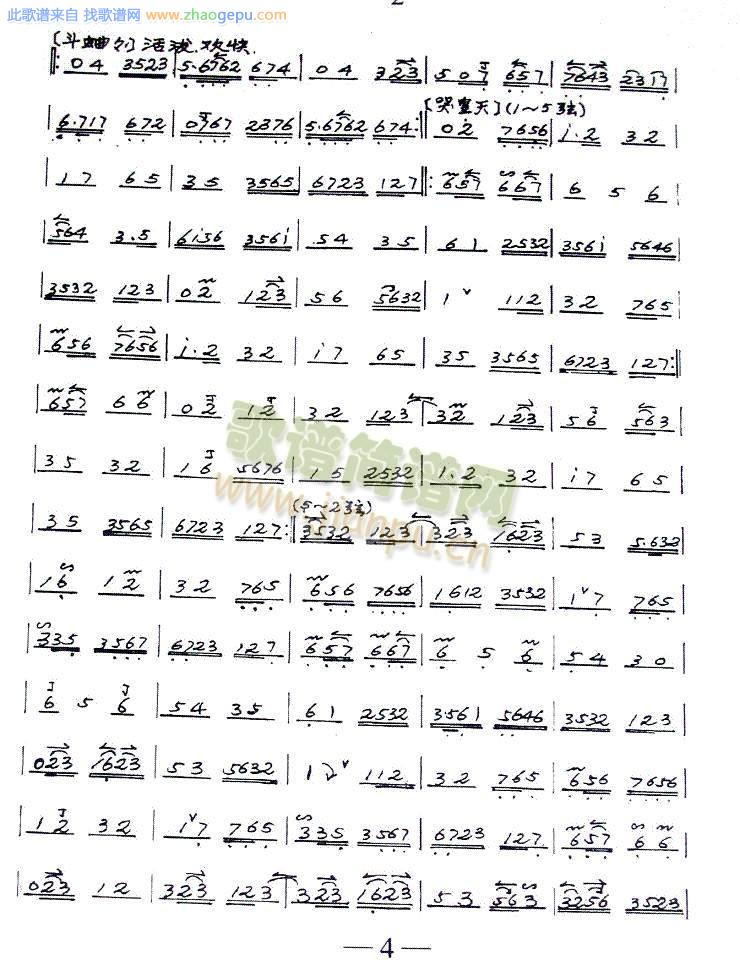 此歌谱来自 找歌谱网 www.zhaogepu.com
2
[斗曲儿] 活泼.欢快.
‖: 04 3523 | 5.6762 674 | 04 323 | 507 657 | 7643 2317 |
[哭皇天] (1~5弦)
| 6.717 672 | 0767 2376 | 5.6762 674 :‖ 02 7656 | i.2 32 |
| 17 65 | 35 3565 | 6723 127 ‖: 657 667 | 6 5 6 |
| 564 3.5 | 6i56 356i | 54 35 | 61 2532 | 356i 5646 |
| 3532 123 | 02 123 | 56 5632 | 1 ∨ 112 | 32 765 |
| 656 7656 | i.2 32 | i7 65 | 35 3565 | 6723 127 :‖
| 657 66 | 02 12 | 32 123 | 32 123 | 56 563 |
| 35 32 | 16 5676 | 15 2532 | 1.2 32 | i7 65 |
(5~23弦)
| 35 3565 | 6723 127 :‖ 3532 123 | 323 1623 | 53 5.632 |
| 16 12 | 32 765 | 656 7656 | 1612 3532 | 1∨7 765 |
| 335 3567 | 6723 127 | 657 667 | 6 5 6 | 54 30 |
| 6 5 6 | 54 35 | 61 2532 | 3561 5646 | 3532 123 |
| 023 1623 | 53 5632 | 1 ∨ 112 | 32 765 | 656 7656 |
| 12 32 | 1∨7 765 | 335 3567 | 6723 127 | 657 66 |
| 023 12 | 323 123 | 323 1623 | 53 563 | 3256 3523 |
歌谱简谱网
www.jianpu.cn
— 4 —